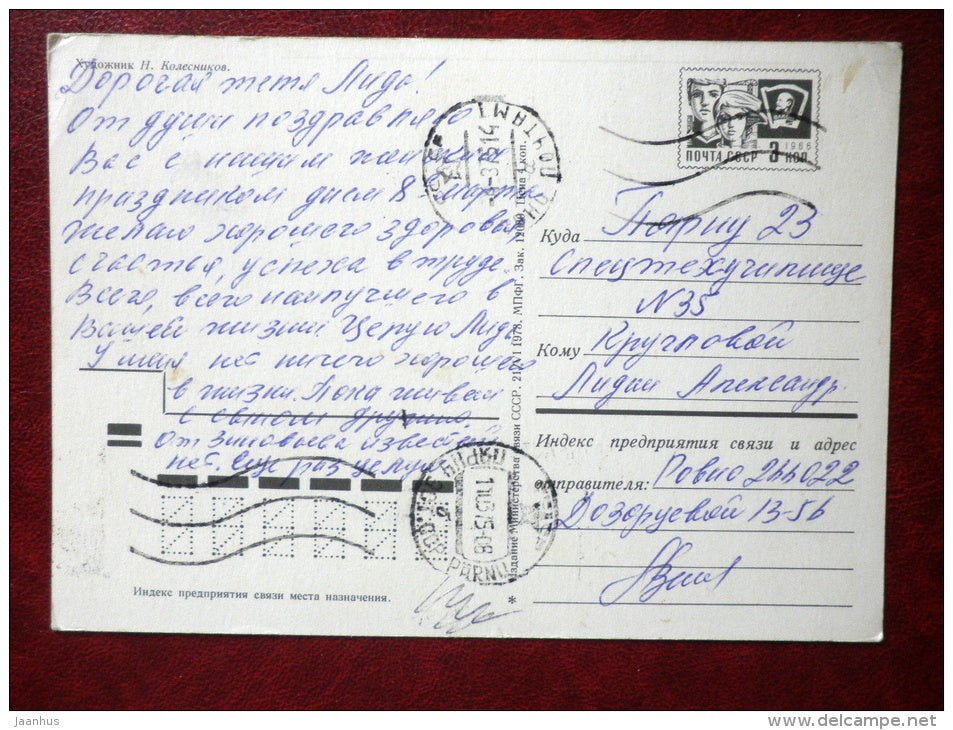 Художник Н. Колесников.
Дорогая тетя Лида!
От души поздравляю
Вас с нашим женским
праздником днем 8 марта
желаю хорошего здоровья,
счастья, успеха в труде.
Всего, всего наилучшего в
Вашей жизни. Целую Лида
У меня нет ничего хорошего
в жизни. Пока живем
с
От Зиновьева известий
нет. Еще раз целую
Индекс предприятия связи места назначения.
* Издание Министерства связи СССР. 1973. МПФГ. Зак. Цена 4 коп.
ПОЧТАМТ
ПЯРНУ
PÄRNU
ПОЧТА СССР 3 КОП
1966
Куда Пярну 23
Спецтехучилище
N 35
Кому Кругловой
Лидии Александр.
Индекс предприятия связи и адрес
отправителя: Ровно 266022
13-56
jaanhus
HipPostcard.com